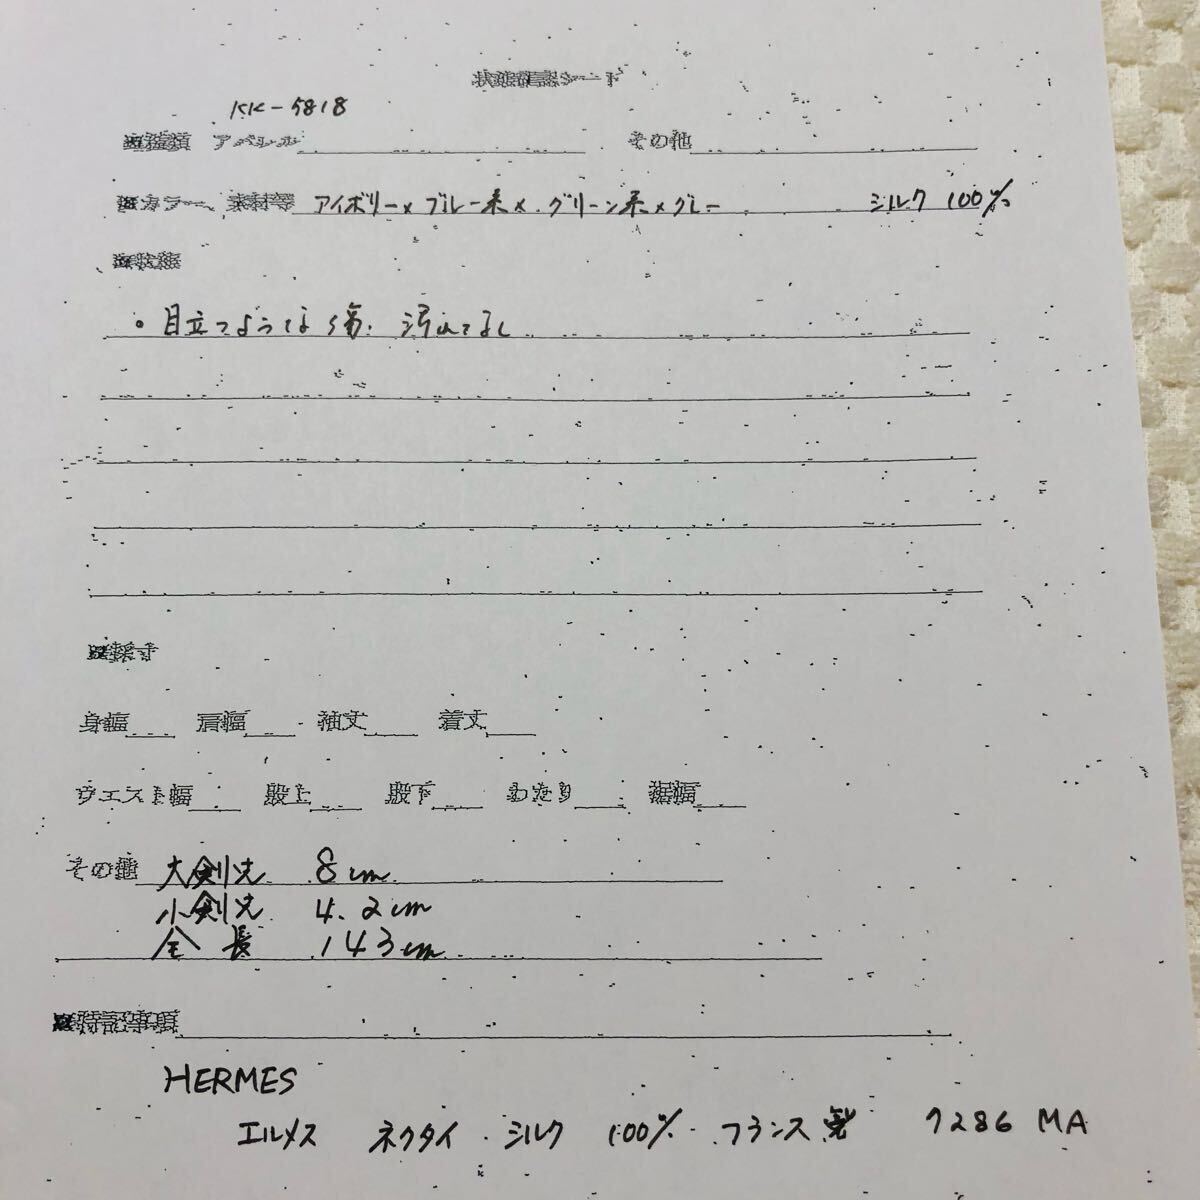 状態確認シート
KK-5818
■種類 アパレル その他
■カラー、素材等 アイボリー×ブルー系×グリーン系×グレー シルク 100%
■状態
。目立つような傷、汚れてなし
■採寸
身幅 肩幅 袖丈 着丈
ウエスト幅 股上 股下 わたり 裾幅
その他 大剣先 8cm
小剣先 4.2cm
全長 143cm
■特記事項
HERMES
エルメス ネクタイ シルク 100% フランス製 7286 MA